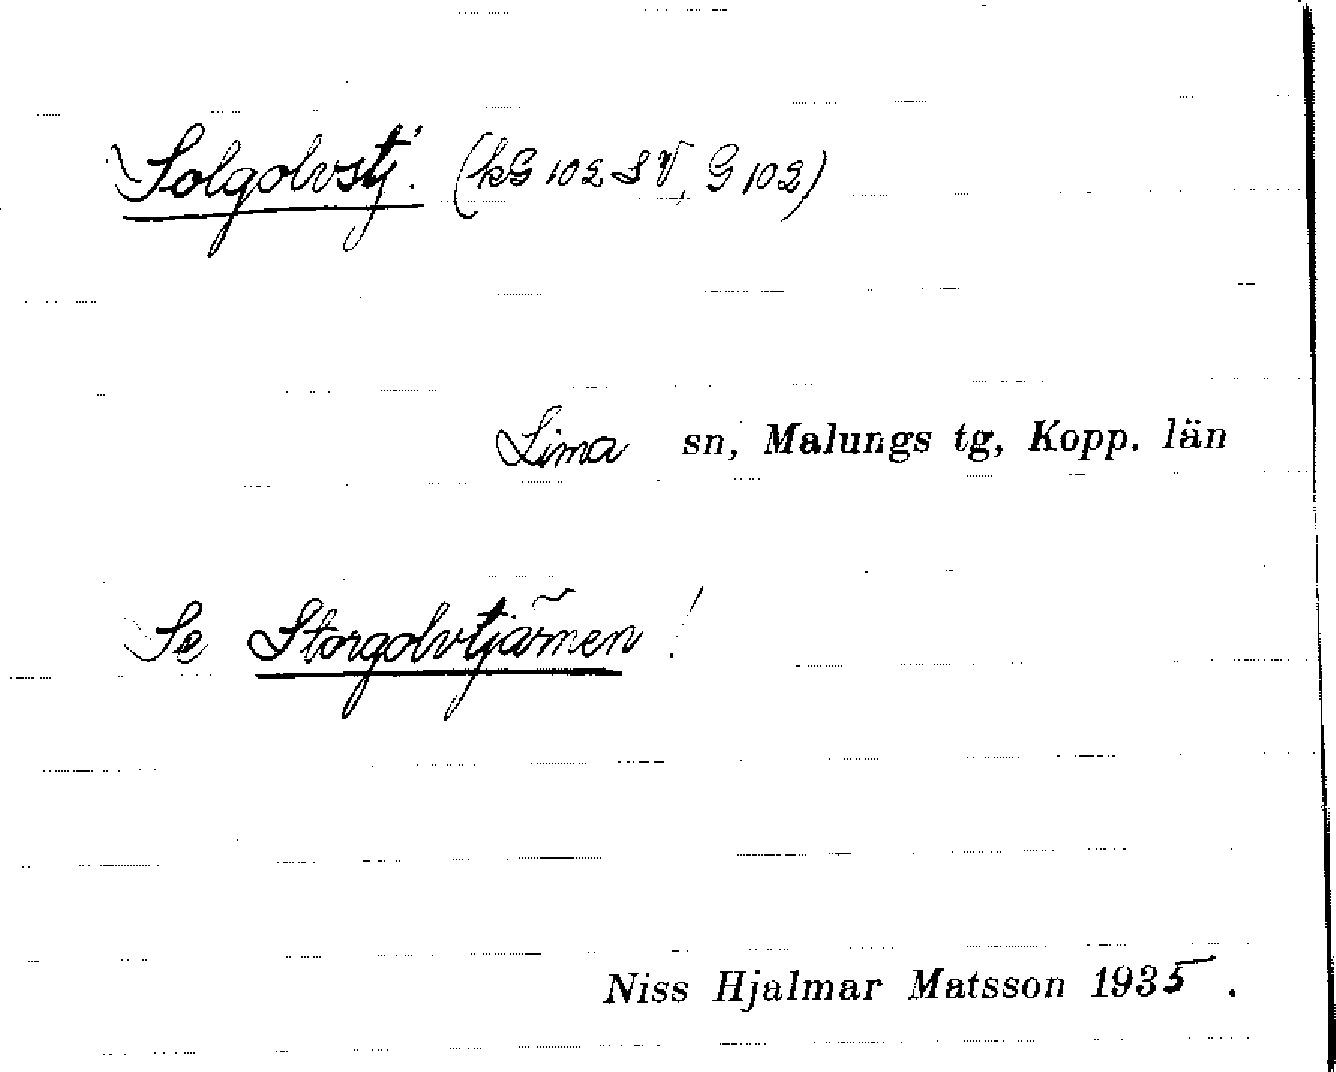 Solgolvstj. (kG 102 SV, G 102)
Lima sn, Malungs tg, Kopp. län
Se Storgolvtjärnen!
Niss Hjalmar Matsson 1935.